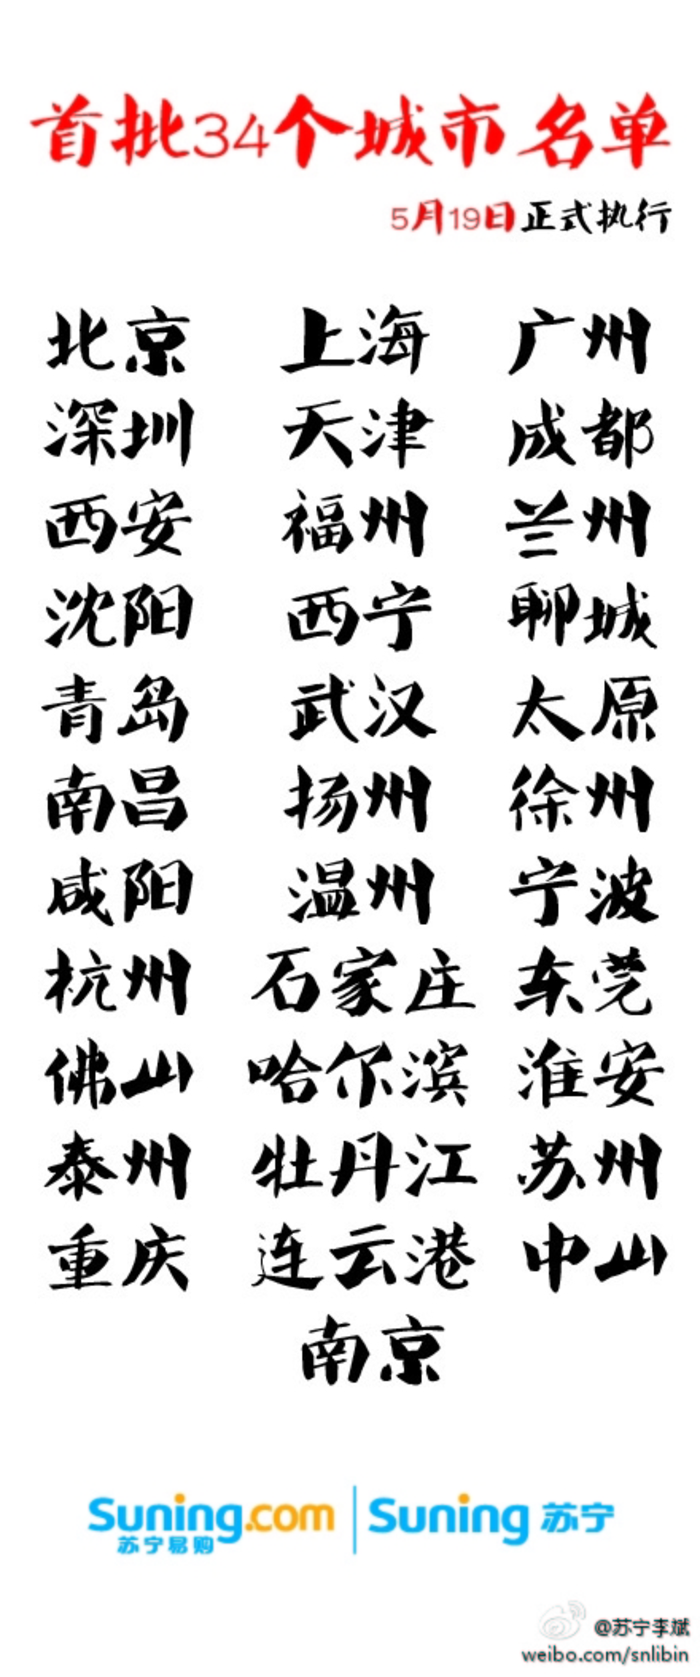 首批34个城市名单
5月19日正式执行
北京 上海 广州
深圳 天津 成都
西安 福州 兰州
沈阳 西宁 聊城
青岛 武汉 太原
南昌 扬州 徐州
咸阳 温州 宁波
杭州 石家庄 东莞
佛山 哈尔滨 淮安
泰州 牡丹江 苏州
重庆 连云港 中山
南京
Suning.com Suning 苏宁
苏宁易购
@苏宁李斌
weibo.com/snlibin